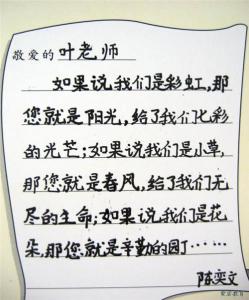 敬爱的叶老师
如果说我们是彩虹,那
您就是阳光,给了我们七彩
的光芒;如果说我们是小草,
那您就是春风,给了我们无
尽的生命;如果说我们是花
朵,那您就是辛勤的园丁……
陈奕文